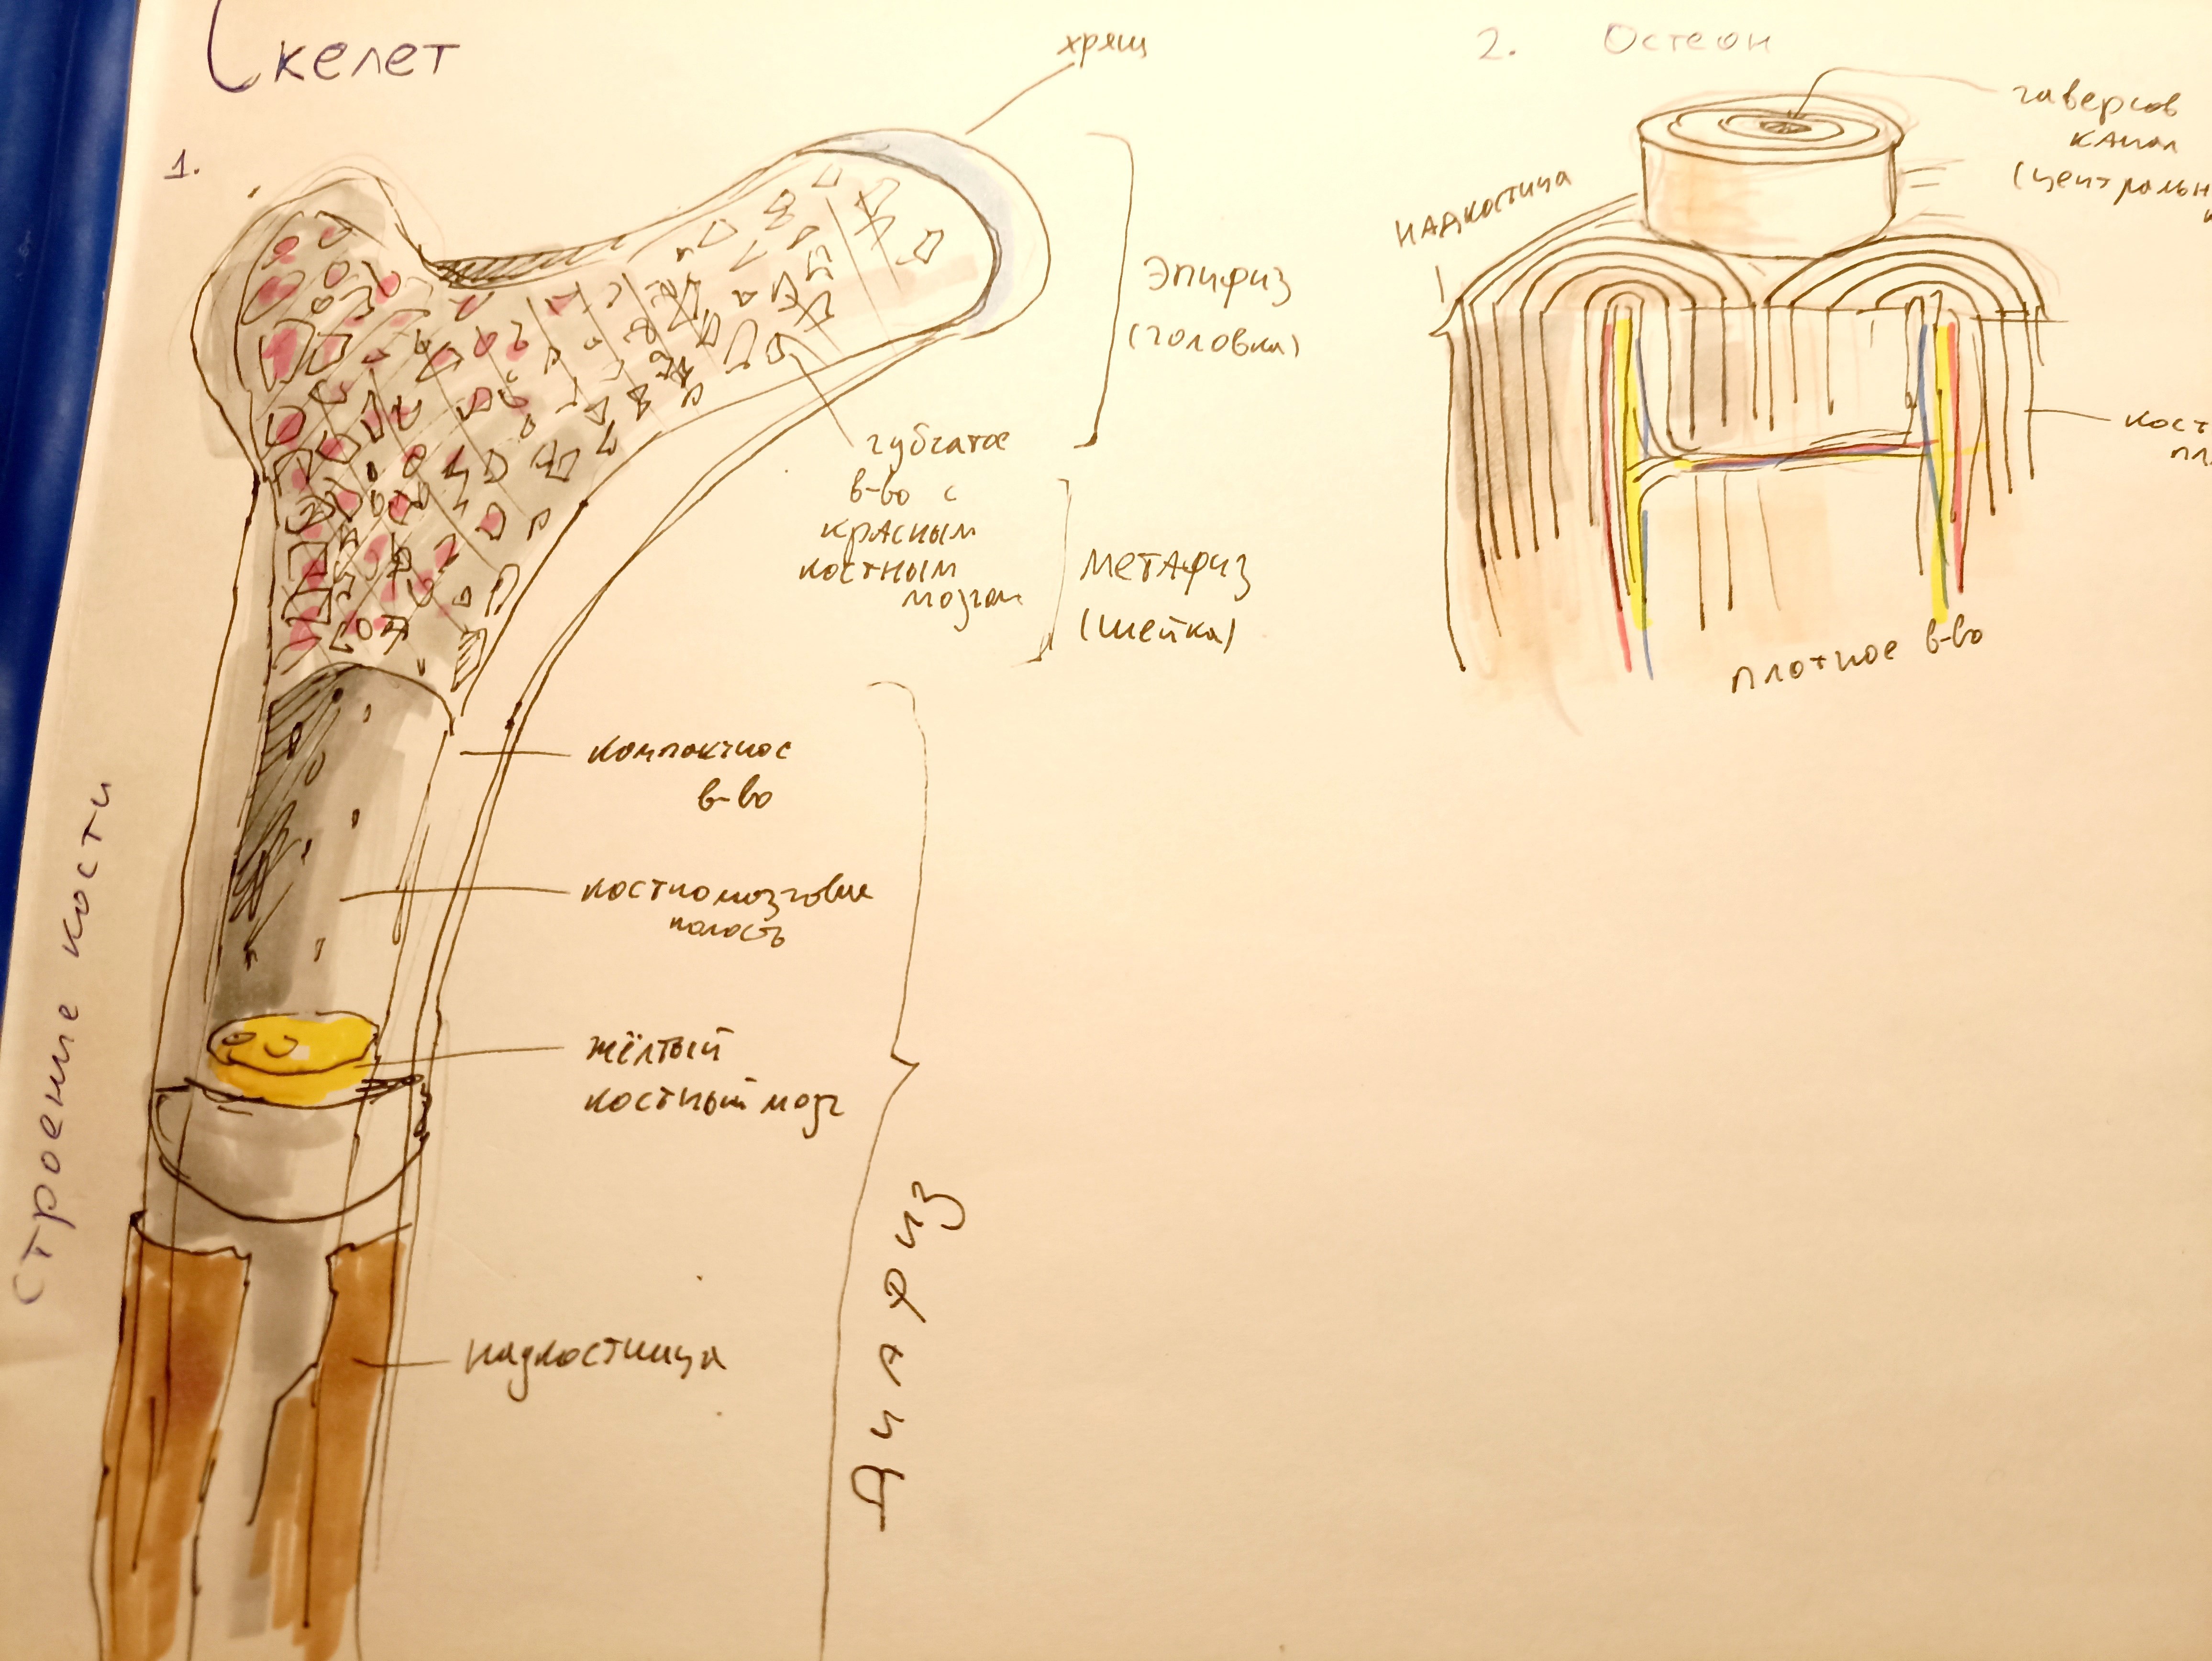 Скелет
1.
хрящ
эпифиз
(головка)
губчатое
в-во с
красным
костным
мозгом
метафиз
(шейка)
компактное
в-во
костномозговая
полость
жёлтый
костный мозг
надкостница
Диафиз
Строение кости
2. Остеон
гаверсов
канал
(центральн
надкостница
кост
пл
плотное в-во